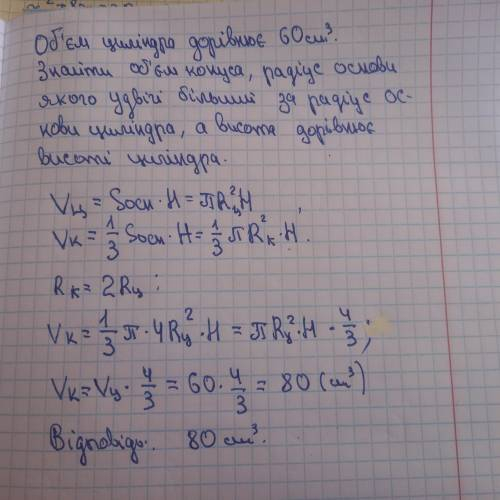 Об'єм циліндра дорівнює 60 см³.
Знайти об'єм конуса, радіус основи
якого удвічі більший за радіус ос-
нови циліндра, а висота дорівнює
висоті циліндра.
Vц = Sосн · H = πRц²H ,
Vк = 1/3 Sосн · H = 1/3 πRк² · H .
Rк = 2Rц ;
Vк = 1/3 π · 4Rц² · H = πRц² · H · 4/3 ;
Vк = Vц · 4/3 = 60 · 4/3 = 80 (см³)
Відповідь: 80 см³.